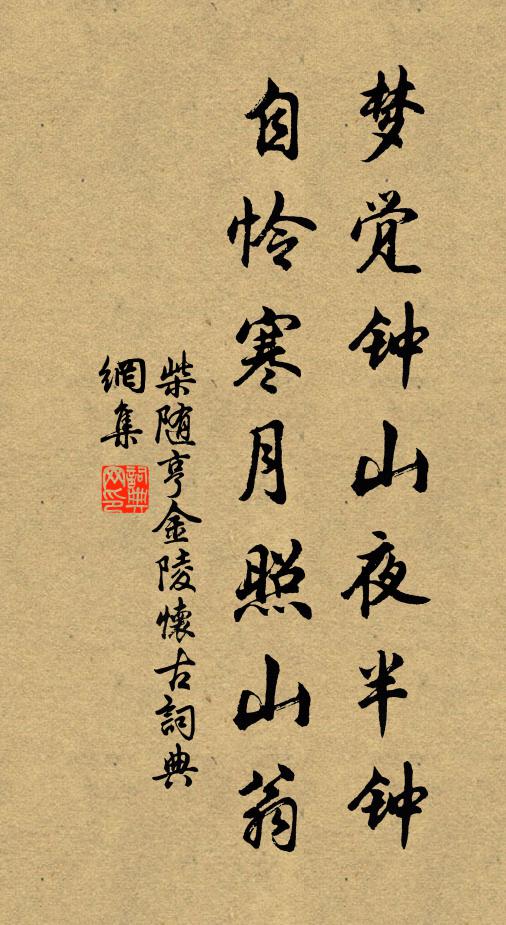 梦觉钟山夜半钟
自怜寒月照山翁
柴随亨金陵懷古詞典
網集
詞典
网印